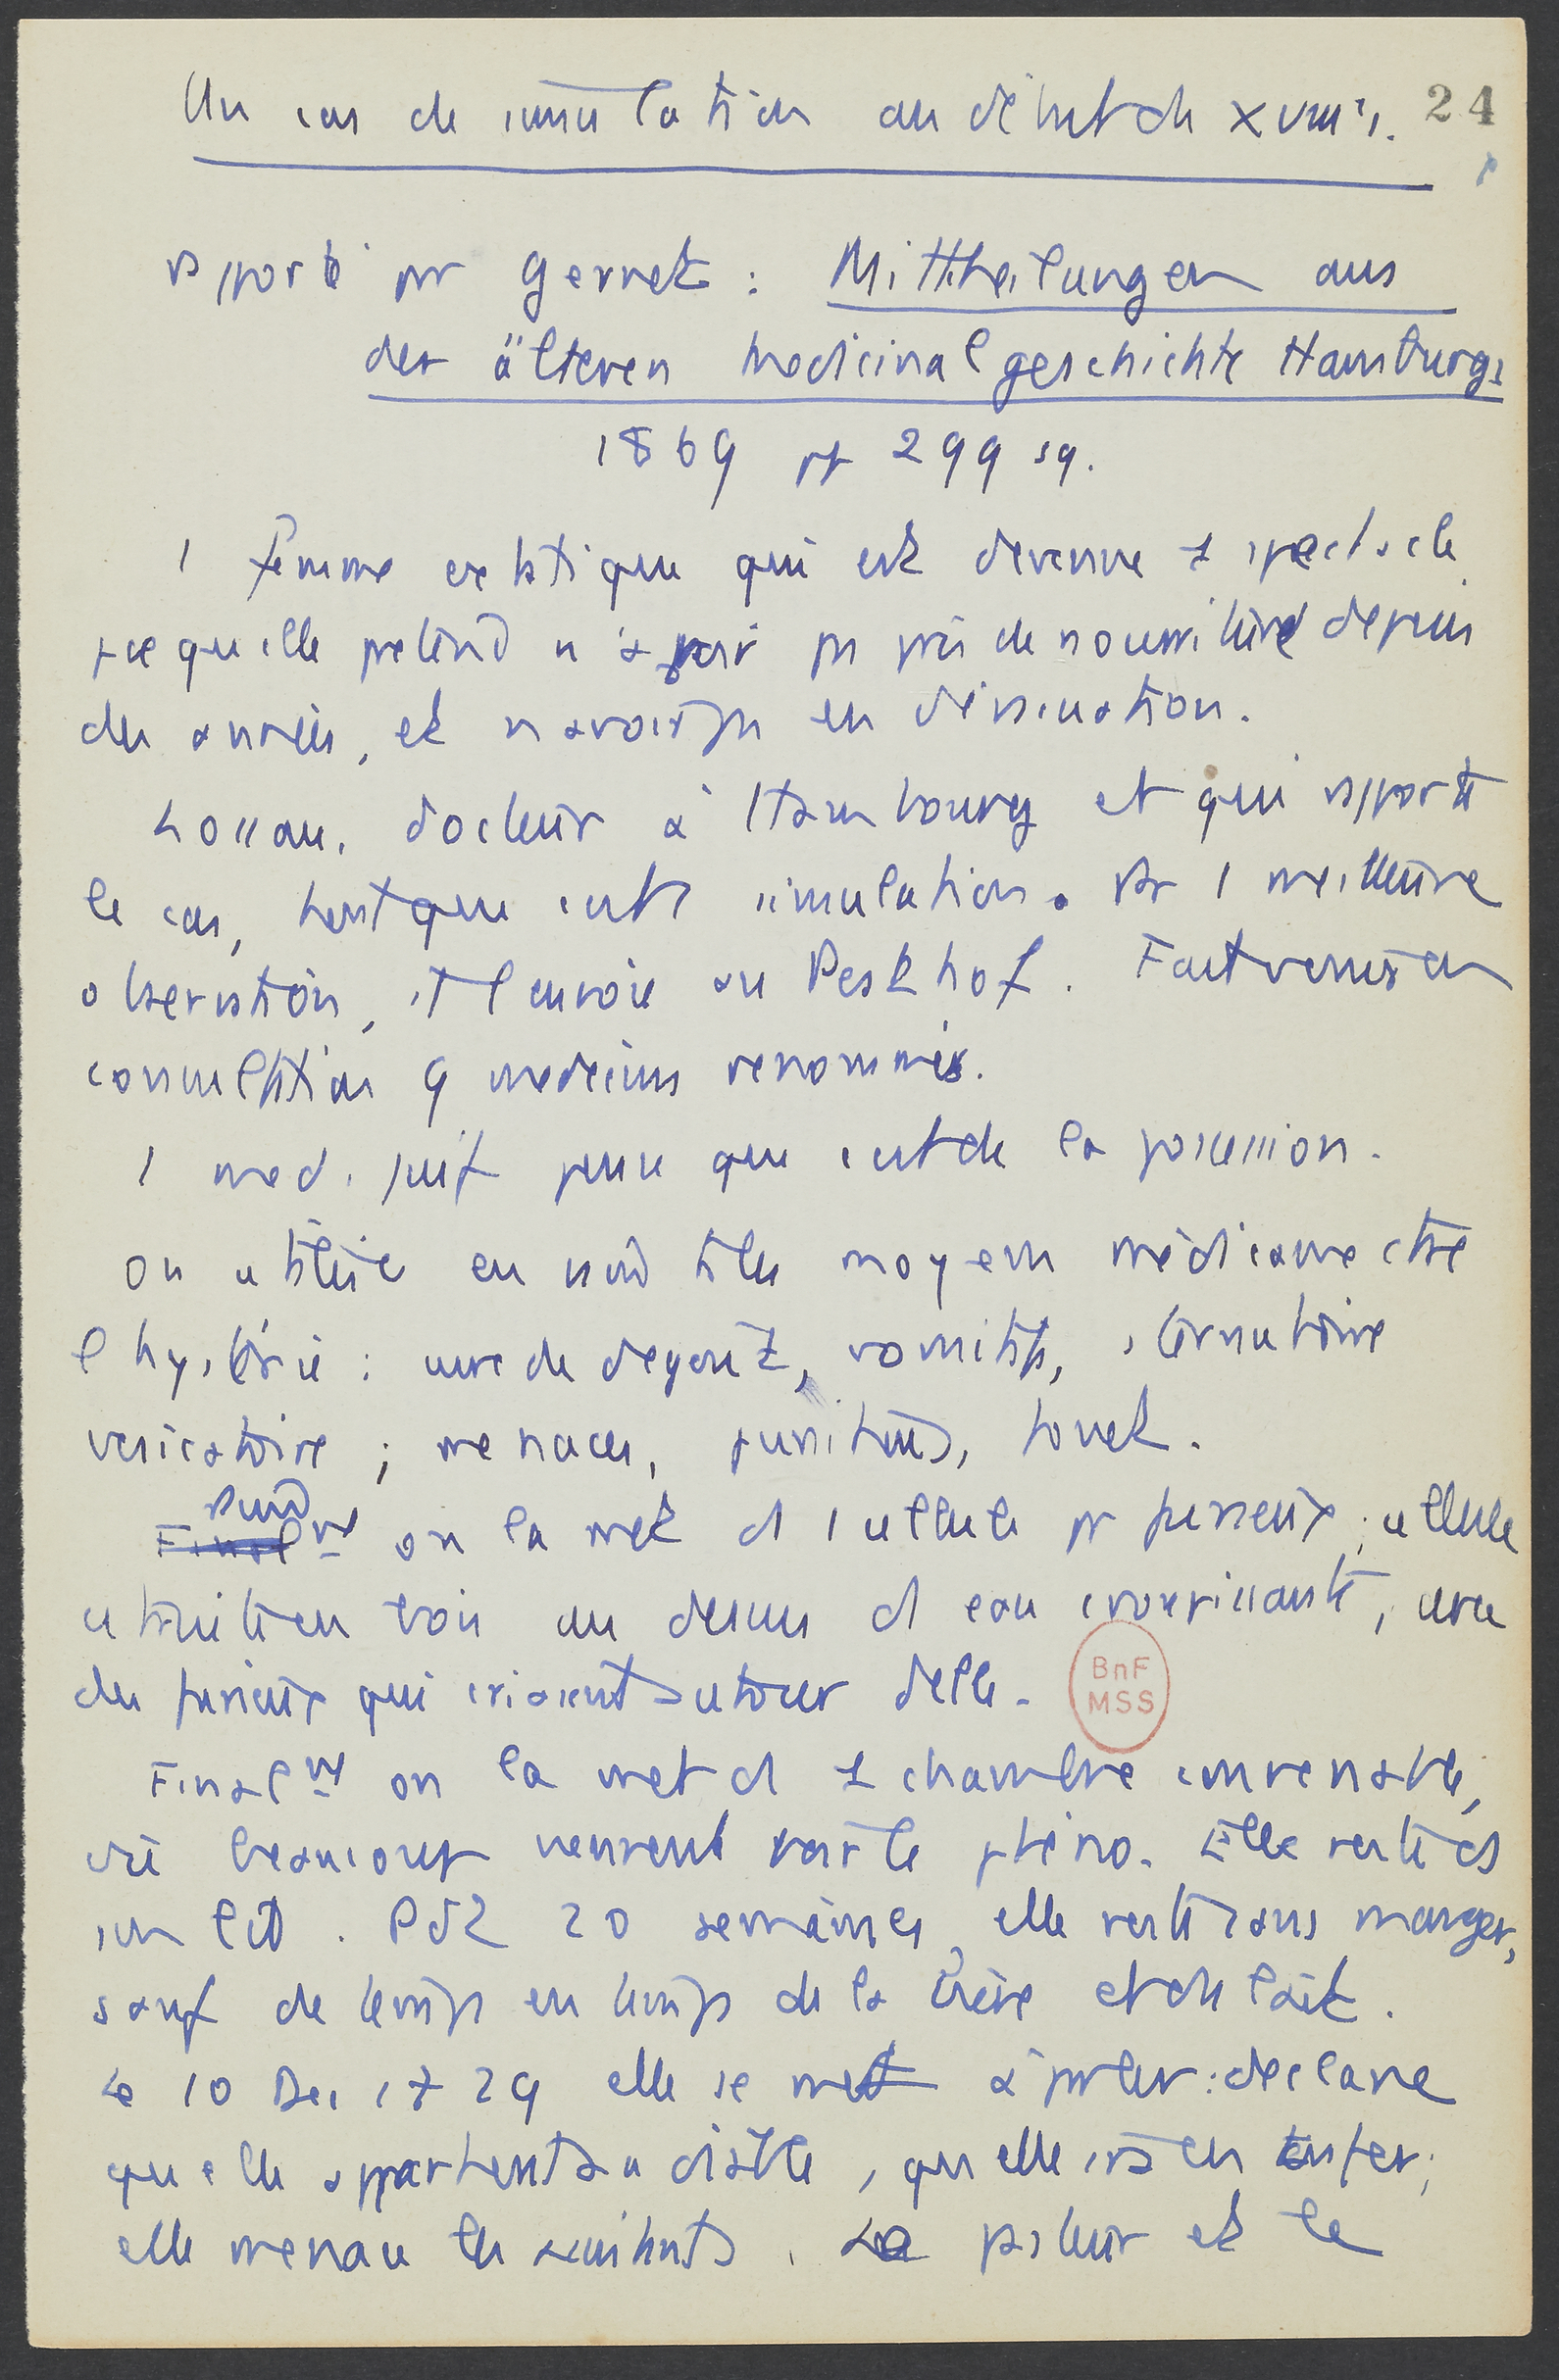 Un cas de simulation au début du XVIIIe s. 24
rapporté pr Gernet : Mittheilungen aus
der älteren Medicinalgeschichte Hamburgs
1869 pp 299 sq.
1 femme extatique qui est devenue 1 spectacle
pce qu'elle prétend n'avoir pas pris de nourriture depuis
des années, et n'avoir pas eu d'évacuation.
Lossau, docteur à Hambourg et qui rapporte
le cas, tient que c'est 1 simulation. Pr 1 meilleure
observation, il l'envoie au Pesthof. Fait venir en
consultation 9 medecins renommés.
1 med. juif pense que c'est de la possession.
On utilise en vain ts les moyens médicaux ctre
l'hystérie : cure de degoût, vomitifs, sternutoire
vesicatoire ; menaces, punitions, fouet.
Finalmt Quand on la met ds 1 cellule pr furieux ; cellule
etroite en bois au dessus d'eau croupissante, avec
des furieux qui criaient autour d'elle.
Finalmt on la met ds 1 chambre convenable,
où beaucoup viennent voir le phéno. Elle reste ds
son lit. Pdt 20 semaines, elle reste sans manger,
sauf de temps en temps de la bière et du lait.
Le 10 Dec 1729 elle se met à parler : declare
qu'elle appartient au diable, qu'elle ira en enfer ;
elle menace les assistants. Le pasteur et le
BnF
MSS